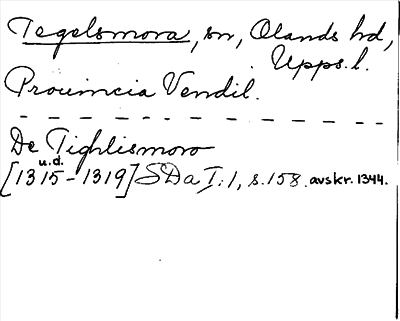 Tegelsmora, sn, Olands hd,
Upps. l.
Prouincia Vendil.
De Tighlismoro
u.d.
[1315-1319] SDa I:1, s.158. avskr. 1344.